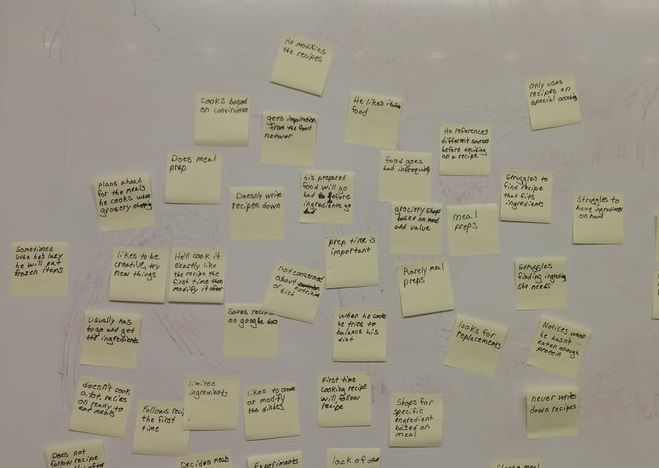 He modifies
the recipes
only uses
recipes on
special
Cooks based
on convinience
gets inspiration
from the food
network
He likes
food
He references
different sources
before deciding
on a recipe
Does meal
prep
food goes
bad infrequently
his prepared
food will go
bad before
ingredients go
bad
plans ahead
for the meals
he cooks when
grocery shopping
Doesn't write
recipes down
grocery shops
based on need
and value
meal
preps
Struggles to
find recipe
that fits
ingredients
Struggles to
have ingredients
on hand
Sometimes
when he's lazy
he will eat
frozen items
likes to be
creative, try
new things
He'll cook it
exactly like
the recipe the
first time then
modify it after
prep time is
important
Not concerned
about
nutrition
or diet
Rarely meal
preps
Struggles
finding
she needs
Saves recipes
on google doc
usually has
to go and get
the ingredients
when he cooks
he tries to
balance his
diet
looks for
replacements
Notices when
he hasn't
eaten enough
protein
doesn't cook
a lot, relies
on ready to
eat meals
Follows
the first
time
limited
ingredients
likes to
or modify
the dishes
First time
cooking recipe
will follow
recipe
Shops for
specific
ingredient
based on
meal
never writes
down recipes
Does not
follow recipe
after
Decides meals
Experiments
lack of
meal